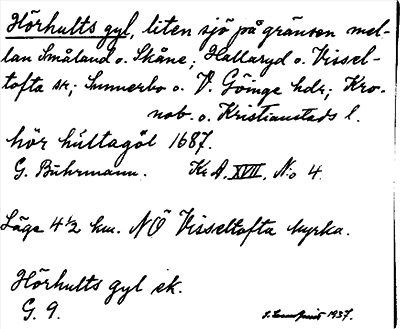 Hörhults gyl, liten sjö på gränsen mel-
lan Småland o. Skåne; Hallaryd o. Vissel-
tofta sr; Sunnerbo o. V. Göinge hdr; Kro-
nob. o. Kristianstads l.
hör hultagöl 1687.
G. Buhrmann. Kr A. XVII. N:o 4.
Läge 4 1/2 km. NÖ Visseltofta kyrka.
Hörhults gyl ek.
G. 9.
1937.